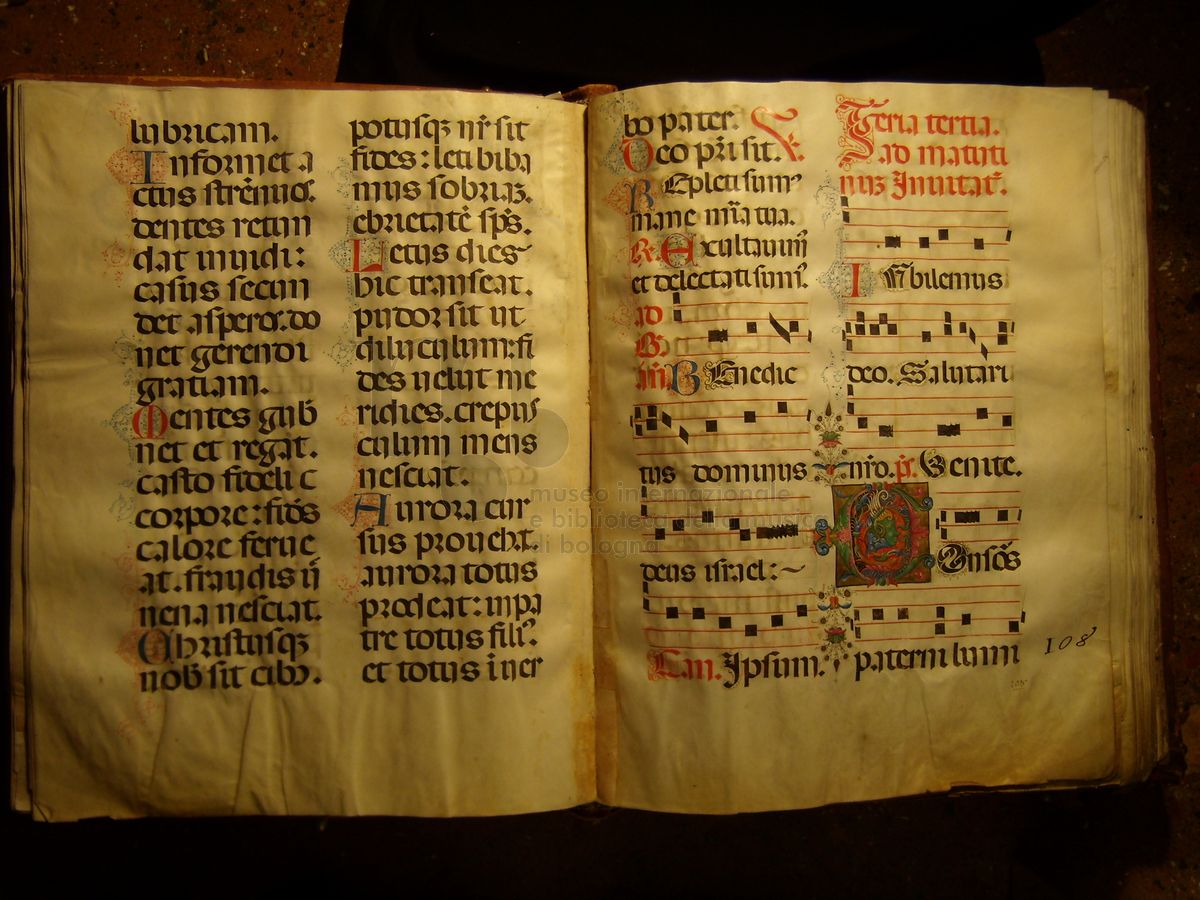 lubricam.
Informet a
ctus strēuos.
dentes retun
dat inuidi:
casus secun
det asperos. do
net gerendi
gratiam.
Mentes gub
net et regat.
casto fideli c
corpore: fid̄s
calore ferue
at. fraudis ū
nena nesciat.
Christusqʒ
nob̄ sit cibꝰ.
potusqʒ nr̄ sit
fides: leti biba
mus sobriaʒ.
ebrietatē sp̄s.
Letus dies
hic transeat.
pudor sit ut
diluculum: fi
des uelut me
ridies. crepus
culum mens
nesciat.
Aurora cur
sus prouehit.
aurora totus
prodeat: inpa
tre totus fili⁹.
et totus in uer
bo pater. ℣.
Deo pr̄i sit.
Repleti sum⁹
mane mīa tua.
℟. Exultauim⁹
et delectati sum⁹.
ad
Bn̄
Benedic
tus dominus
deus israel:~
Can. Ipsum.
Feria tertia.
ad matuti
nuʒ Inuitat̄.
Iubilemus
deo. Salutari
nr̄o. p̄s. Uenite.
Consōs
paterni lumi
108
museo internazionale
e biblioteca della musica
di bologna